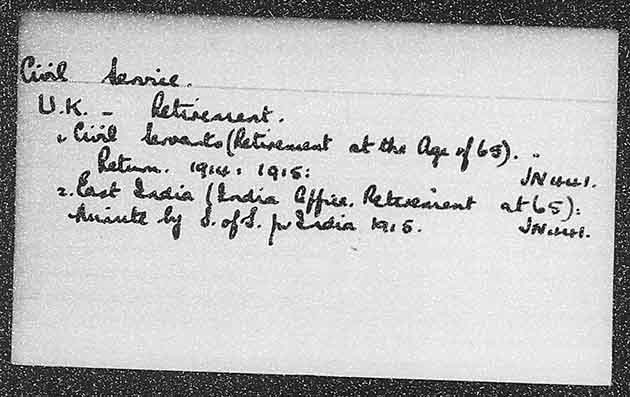 Civil Service.
U.K. - Retirement.
1. Civil Servants (Retirement at the Age of 65).
Return. 1914: 1915: JN441.
2. East India (India Office. Retirement at 65):
Minute by S. of S. for India 1915. JN441.